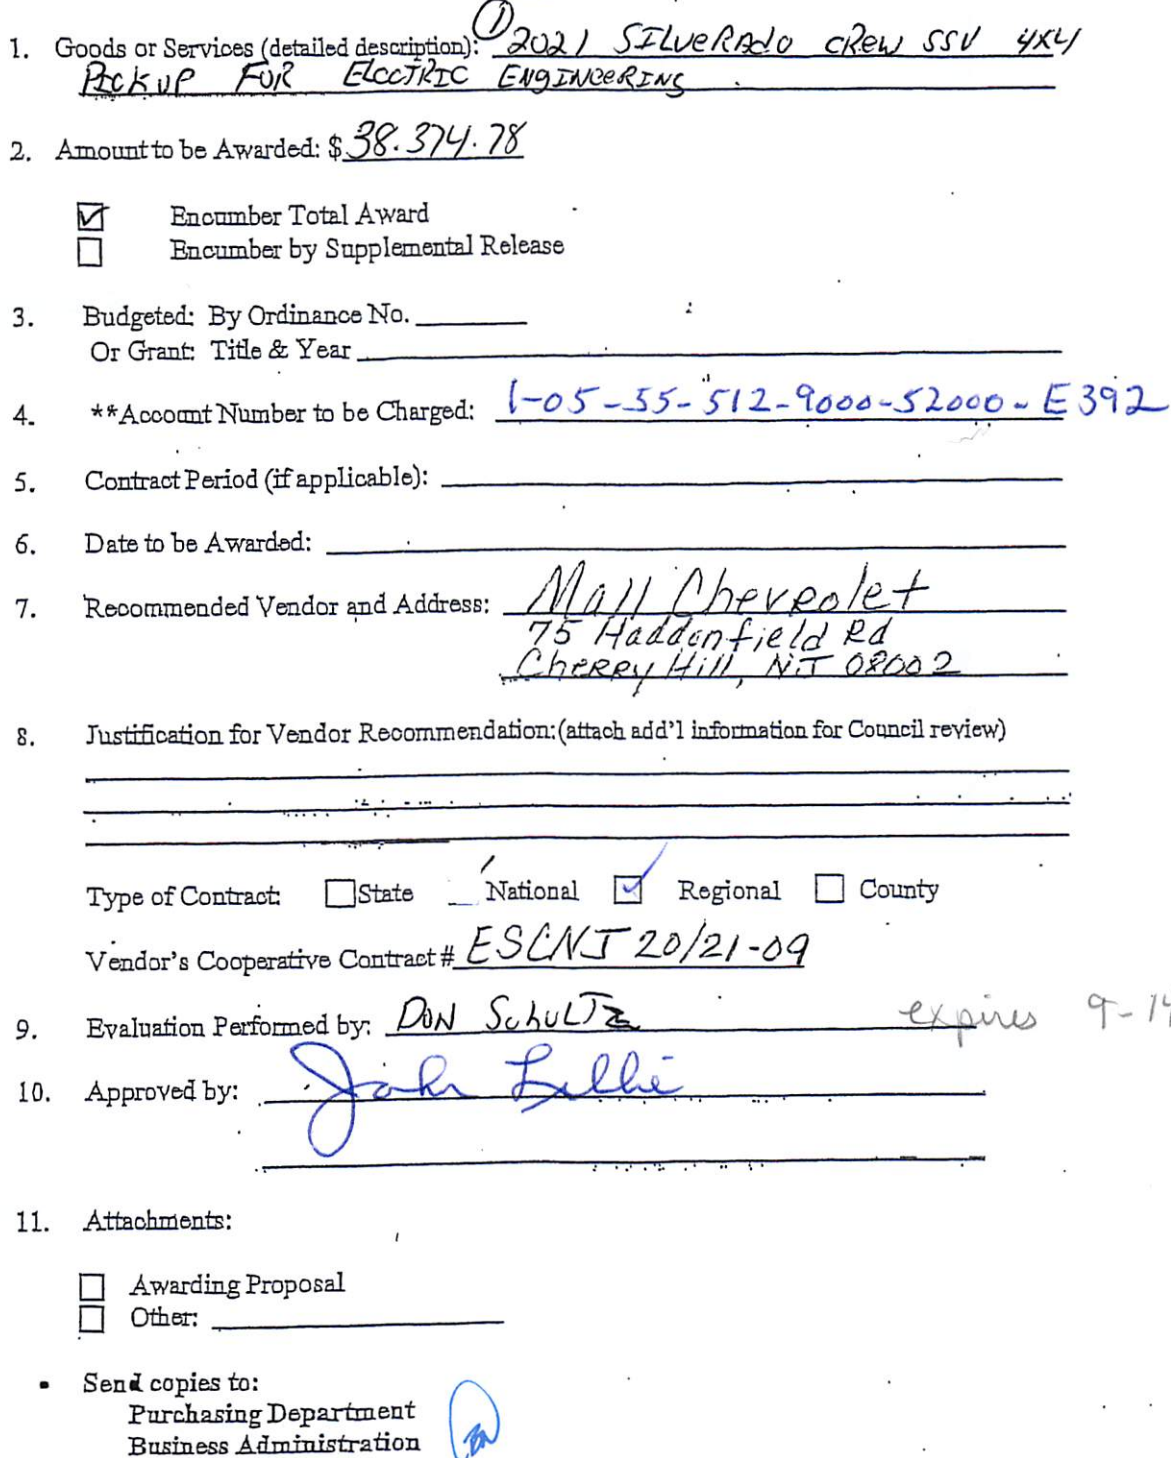 1. Goods or Services (detailed description): ① 2021 SILVERADO CREW SSV 4X4
PICKUP FOR ELCCTRIC ENGINEERING
2. Amount to be Awarded: $ 38.374.78
☑ Encumber Total Award
☐ Encumber by Supplemental Release
3. Budgeted: By Ordinance No. ______
Or Grant: Title & Year ______
4. **Account Number to be Charged: 1-05-55-512-9000-52000-E392
5. Contract Period (if applicable): ______
6. Date to be Awarded: ______
7. Recommended Vendor and Address: Mall Chevrolet
75 Haddonfield Rd
Cherry Hill, NJ 08002
8. Justification for Vendor Recommendation:(attach add'l information for Council review)
Type of Contract: ☐ State __ National ☑ Regional ☐ County
Vendor's Cooperative Contract # ESCNJ 20/21-09
9. Evaluation Performed by: DON SCHULTZ expires 9-14
10. Approved by: John Lillie
11. Attachments:
☐ Awarding Proposal
☐ Other: ______
▪ Send copies to:
Purchasing Department
Business Administration